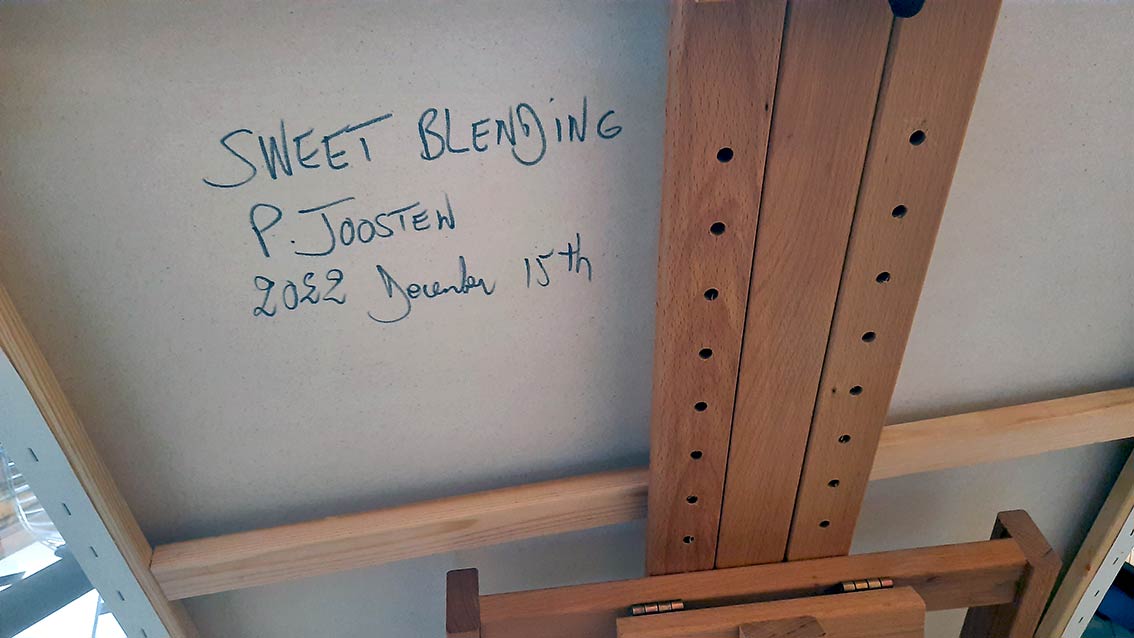 SWEET BLENDING
P. JOOSTEN
2022 December 15th